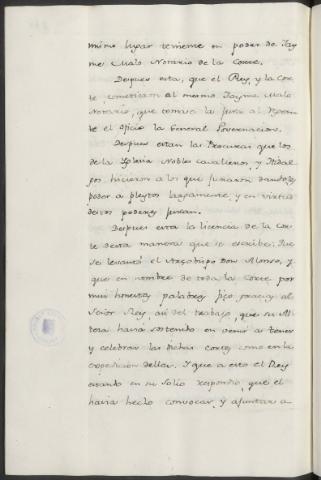 mismo lugar teniente en poder de Jay
me Malo Notario de la Corte.
Despues esta, que el Rey, y la Cor
te, cometieron al mesmo Jayme Malo
Notario, que tomava la Jura al Regen
te el oficio la General Governacion.
Despues estan las Procuras que los
de la Iglesia Nobles cavalleros, y Hidal
gos hicieron a los que juraron dandoles
poder a pleytos largamente, y en virtud
de los poderes juran.
Despues esta la licencia de la Cor
te desta manera que se escribe: Que
se levantó el Arzobispo Don Alonso, y
que en nombre de toda la Corte por
mui honestas palabras hizo gracias al
Señor Rey asi del trabajo, que su Al
teza havia sostenido en venir a tener
y celebrar las dichas cortes como en la
expedicion dellas. Y que a esto el Rey
estando en su Solio respondio, que el
havia hecho convocar, y ajuntar a